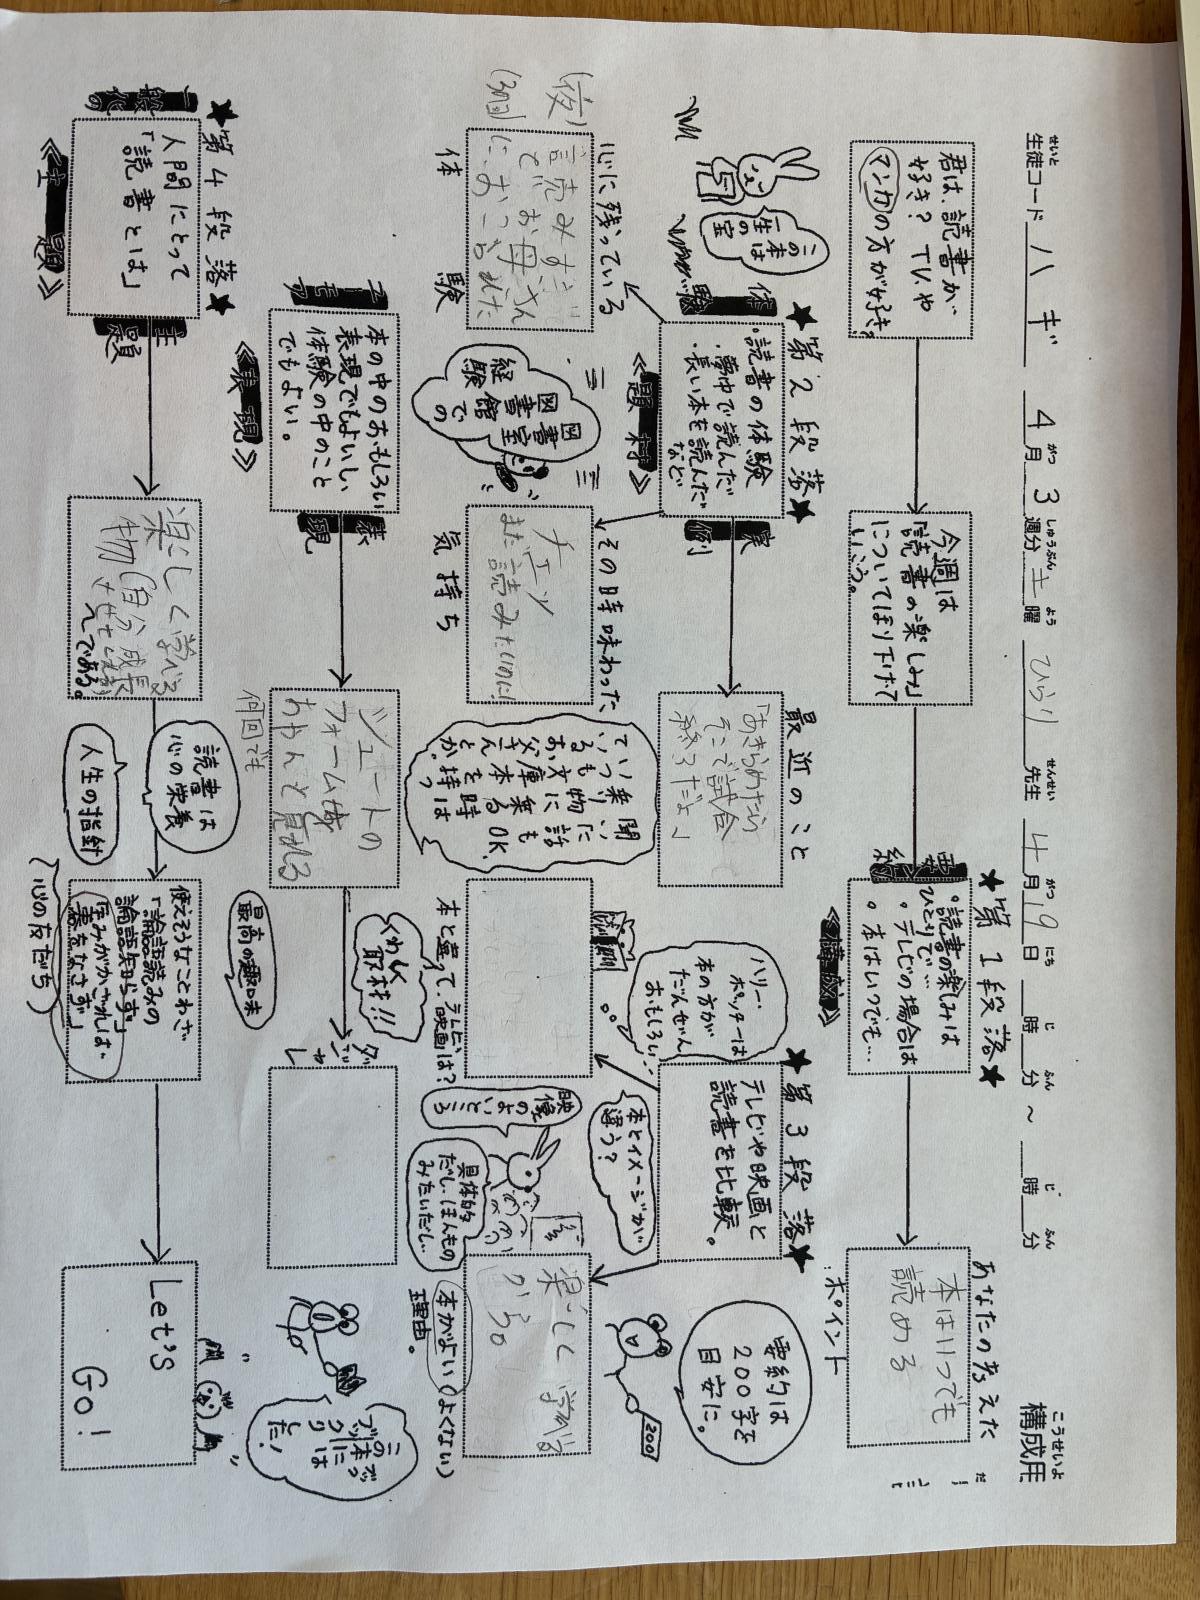 構成用
こうせいよ
生徒コード ハギ 4月 3週分 土曜 ひらり 先生 4月19日 時 分 ～ 時 分
君は、読書が
好き？ TVや
マンガの方が好き？
今週は
「読書の楽しみ」
について ほり下げて
いこう。
★第1段落★
要約
。読書の楽しみは
ひとりで…
。テレビの場合は
。本はいつでも…
《構成》
あなたの考えた
本はいつでも
読める
ポイント
この本は
一生の
宝
★第2段落★
。読書の体験
・夢中で読んだ
・長い本を読んだ
など
《題材》
実例
最近のこと
「あきらめたら
そこで試合
終了だよ」
ハリー・
ポッターは
本の方が
だんぜん
おもしろい！
★第3段落★
テレビや映画と
読書を比較。
要約は
200字を
目安に。
200!
心に残っている
(夜)
(3個)
読みすぎ
てお母さん
におこられた
体験
図書室
図書館での
経験
その時味わった
チェッ
まだ読みたいのに!
気持ち
聞いた話
乗り物に乗る時は
いつも文庫本を持っ
ている
お父さんとか。
OK
本とイメージが
違う？
本と違って、テレビ、映画は？
映像の
よいところ
具体的
だし、ほんもの
みたいだし
楽しく学べる
から。
本がよい(よくない)
理由。
ユーモア
本の中のおもしろい
表現でもよいし
体験の中のこと
でもよい。
《表現》
表現
シュートの
フォーム
何回でも
くわしく
取材!!
ダジャレ
この本には
ブックリ
した！
★第4段落★
人間にとって
「読書とは」
《主題》
主題
楽しく学べる
物(自分成長
させる
である。
読書は
心の栄養
人生の指針
最高の趣味
使えそうなことわざ
「論語読みの
論語知らず」
「玉みがかざれば
器をなさず」
(心の友だち)
Let's
GO!